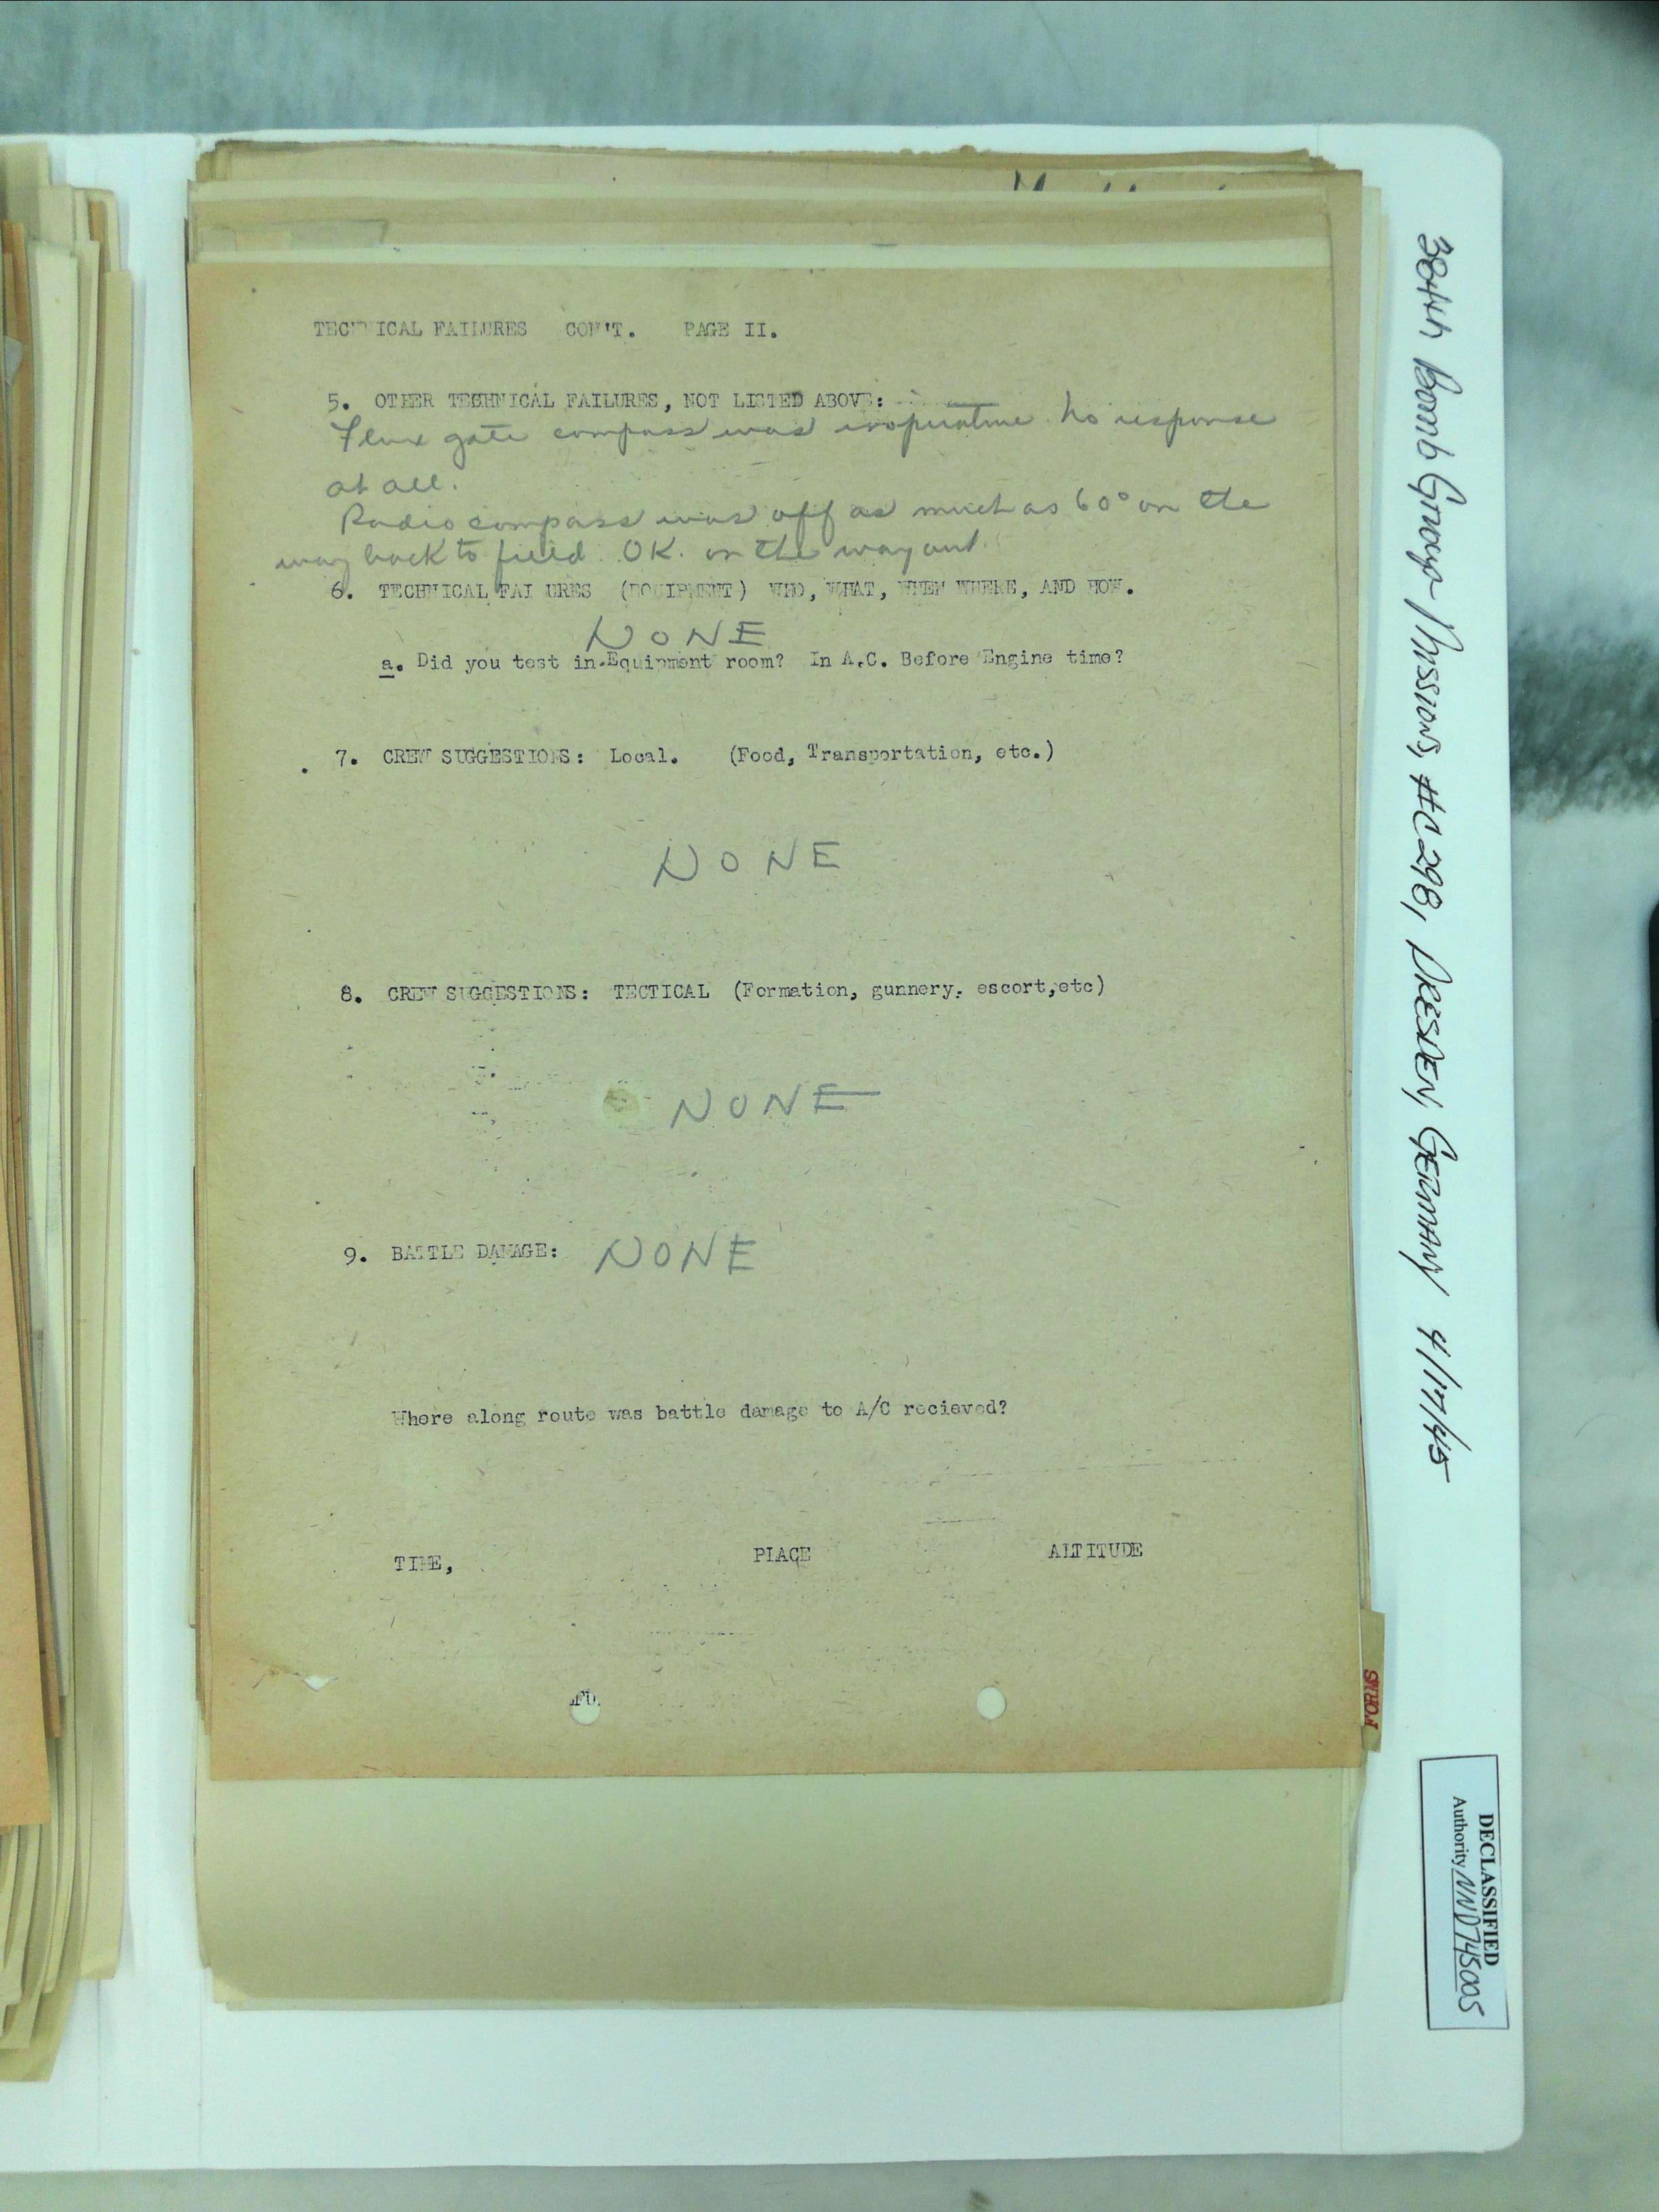 TECHNICAL FAILURES CON'T. PAGE II.
5. OTHER TECHNICAL FAILURES, NOT LISTED ABOVE:
Flux gate compass was inoperative no response
at all.
Radio compass was off as much as 60° on the
way back to field. OK. on the way out.
6. TECHNICAL FAI URES (EQUIPMENT) WHO, WHAT, WHEN WHERE, AND HOW.
NONE
a. Did you test in Equipment room? In A.C. Before Engine time?
7. CREW SUGGESTIONS: Local. (Food, Transportation, etc.)
NONE
8. CREW SUGGESTIONS: TECTICAL (Formation, gunnery, escort,etc)
NONE
9. BATTLE DAMAGE: NONE
Where along route was battle damage to A/C recieved?
TIME, PLACE ALTITUDE
FORMS
384th Bomb Group - Missions, #C298, DRESDEN, GERMANY 4/17/45
DECLASSIFIED
Authority NND745005